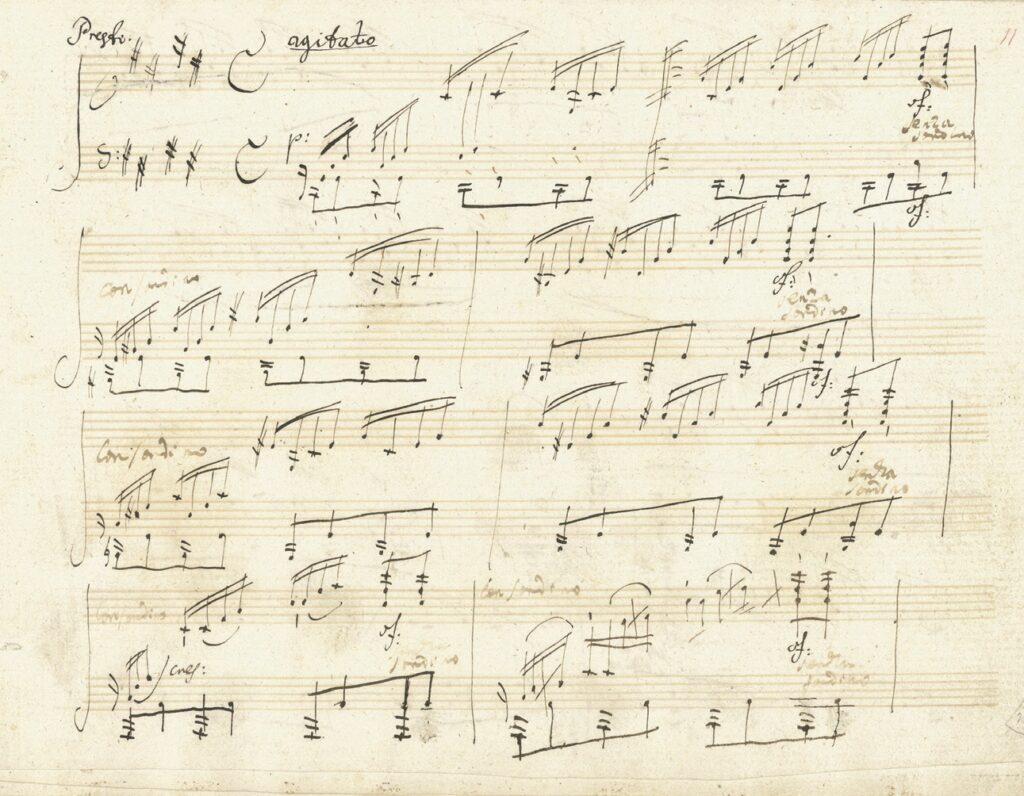 Presto. agitato
11
p:
sf:
senza
sordino
sf:
con sordino
sf:
senza
sordino
sf:
Con sordino
sf:
senza
sordino
con sordino
con sordino
sf:
cres:
sordino
sf:
senza
sordino